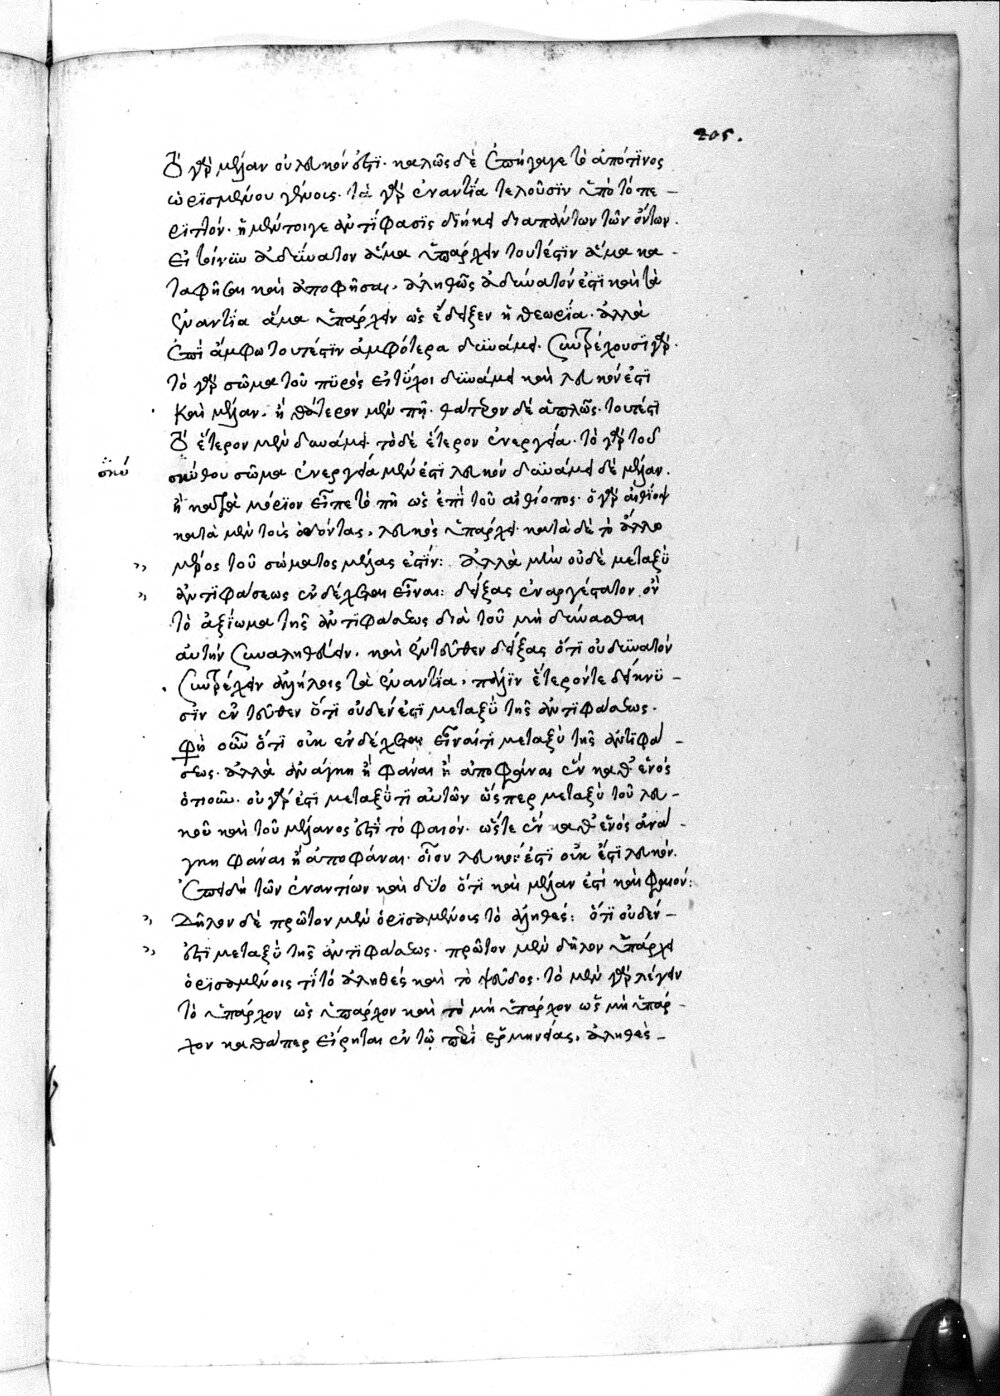 205.
ὃ γὰρ μέλαν οὐ λευκόν ἐστι· καλῶς δὲ ἐπήγαγε τὸ ἀπό τινος
ὡρισμένου γένους· τὰ γὰρ ἐναντία τελοῦσιν ὑπὸ τὸ πε –
ριττόν· ἡ μέντοιγε ἀντίφασις διήκει διαπάντων τῶν ὄντων.
εἰ τοίνυν ἀδύνατον ἅμα ὑπάρχειν τουτέστιν ἅμα κα –
ταφῆσαι καὶ ἀποφῆσαι, ἀληθῶς ἀδύνατόν ἐστι καὶ τὰ
ἐναντία ἅμα ὑπάρχειν ὡς ἔδειξεν ἡ θεωρία· ἀλλὰ
ἐπὶ ἄμφω τουτέστιν ἀμφότερα δυνάμει· συντρέχουσι γάρ·
τὸ γὰρ σῶμα τοῦ πυρὸς εἰ τύχοι δυνάμει καὶ λευκόν ἐστι
καὶ μέλαν· ἢ θάτερον μὲν πῆ· θάτερον δὲ ἁπλῶς· τουτέστι
ὃ ἕτερον μὲν δυνάμει· τὸ δὲ ἕτερον ἐνεργεία· τὸ γὰρ τοῦ
σκύθου σῶμα ἐνεργεία μέν ἐστι λευκὸν δυνάμει δὲ μέλαν.
ἢ κατὰ μόριον εἶπε τὸ πῆ ὡς ἐπὶ τοῦ αἰθίοπος· ὁ γὰρ αἰθίοψ
κατὰ μὲν τοὺς ὀδόντας, λευκὸς ὑπάρχει· κατὰ δὲ τὸ ἄλλο
μέρος τοῦ σώματος μέλας ἐστίν: ἀλλὰ μὴν οὐδὲ μεταξὺ
ἀντιφάσεως ἐνδέχεται εἶναι: δείξας ἐναργέστατον ὂν
τὸ ἀξίωμα τῆς ἀντιφάσεως διὰ τοῦ μὴ δύνασθαι
αὐτὴν συναληθεύειν· καὶ ἐντεῦθεν δείξας ὅτι οὐ δυνατὸν
συντρέχειν ἀλλήλοις τὰ ἐναντία, πάλιν ἕτερόν τε δείκνυ –
σιν ἐντεῦθεν ὅτι οὐδέν ἐστι μεταξὺ τῆς ἀντιφάσεως.
φησὶ οὖν ὅτι οὐκ ἐνδέχεται εἶναί τι μεταξὺ τῆς ἀντιφά –
σεως· ἀλλὰ ἀνάγκη ἢ φάναι ἢ ἀποφάναι ἓν καθ' ἑνὸς
ὁτιοῦν· οὐ γάρ ἐστι μεταξύ τι αὐτῶν ὥσπερ μεταξὺ τοῦ λευ –
κοῦ καὶ τοῦ μέλανος ἐστὶ τὸ φαιόν· ὥστε ἓν καθ' ἑνὸς ἀνά –
γκη φάναι ἢ ἀποφάναι· οἷον λευκόν ἐστι οὐκ ἔστι λευκόν.
ἐπειδὴ τῶν ἐναντίων καὶ δύο ὅτι καὶ μέλαν ἐστὶ καὶ φαιόν:
Δῆλον δὲ πρῶτον μὲν ὁρισαμένοις τὸ ἀληθές: ὅτι οὐδέν –
ἐστι μεταξὺ τῆς ἀντιφάσεως· πρῶτον μὲν δῆλον ὑπάρχει
ὁρισαμένοις τί τὸ ἀληθές καὶ τὸ ψεῦδος· τὸ μὲν γὰρ λέγειν
τὸ ὑπάρχον ὡς ὑπάρχον καὶ τὸ μὴ ὑπάρχον ὡς μὴ ὑπάρ –
χον καθάπερ εἴρηται ἐν τῷ περὶ ἑρμηνείας, ἀληθὲς –